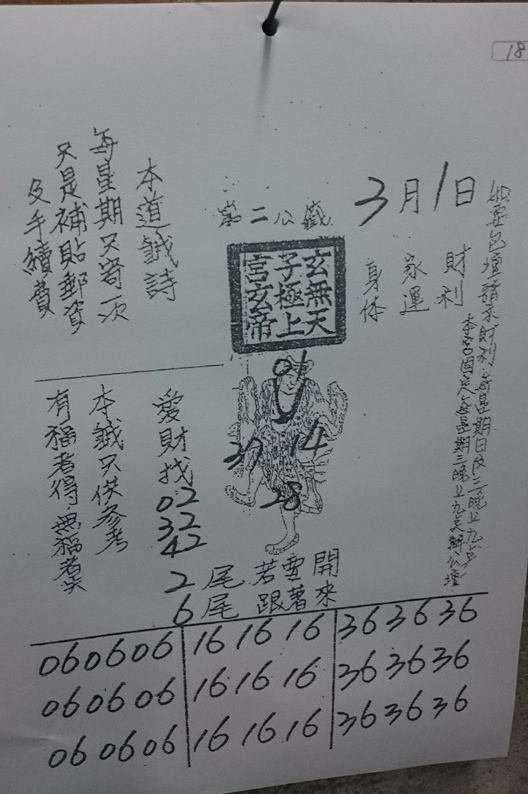 18
如要包壇請求財利.每星期日及三晚上九点
本宮固定每星期三晚上九点辦公壇
3月1日
財利
家運
身体
第二公籤
玄無天
子極上
宮玄帝
14
28
本道籤詩
每星期只寄一次
只是補貼郵資
及手續費
愛財找
02
32
42
本籤只供參考
有福者得.無福者失
2尾若要開
6尾跟著來
06 06 06 16 16 16 36 36 36
06 06 06 16 16 16 36 36 36
06 06 06 16 16 16 36 36 36